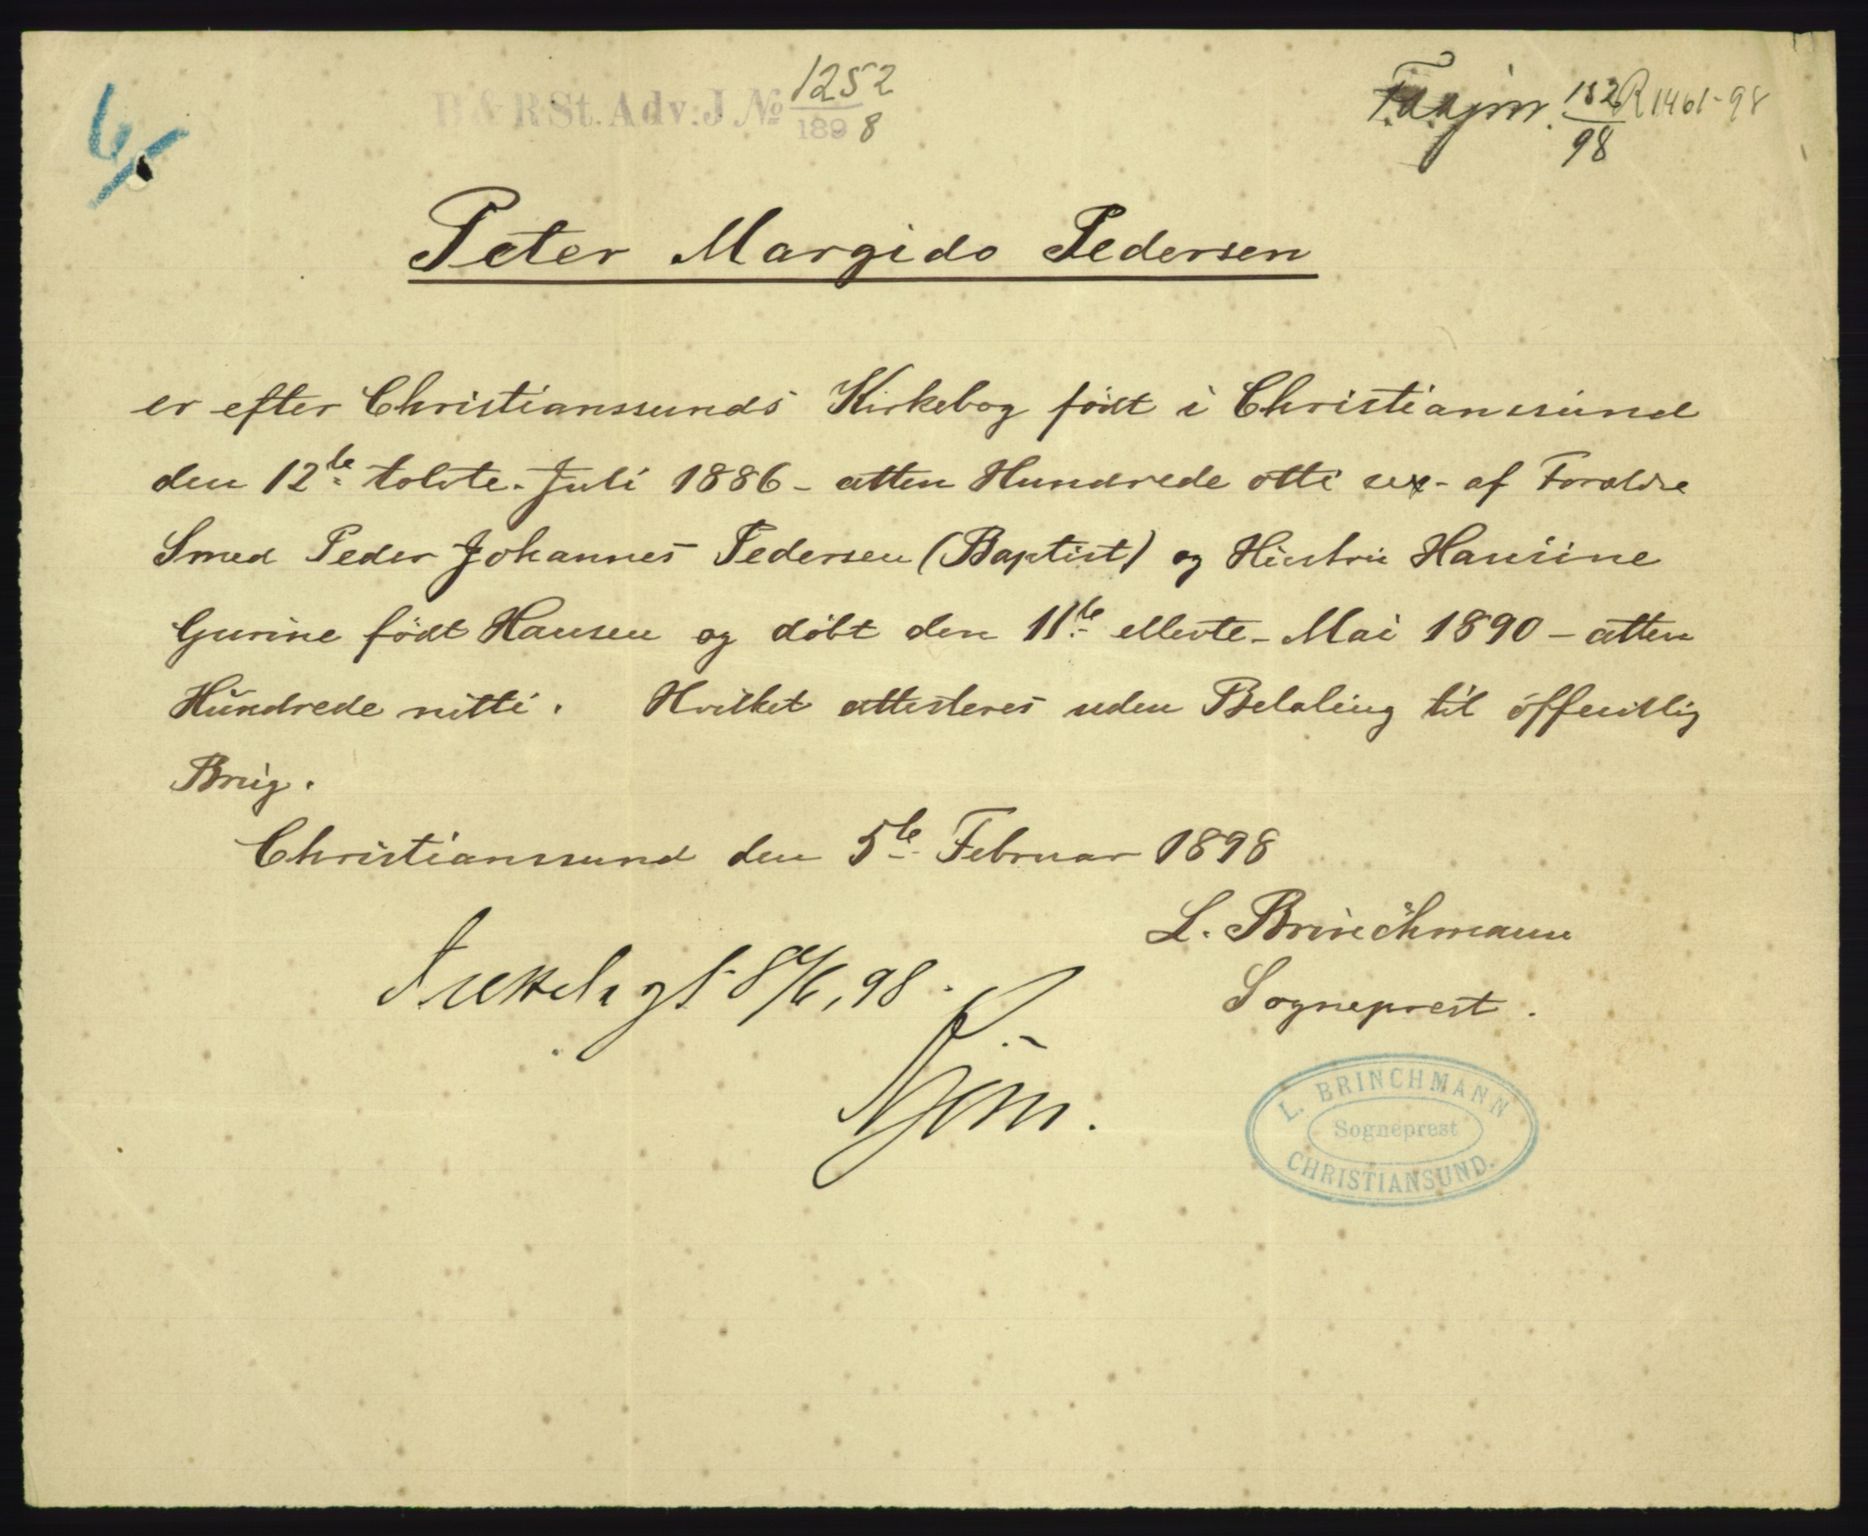 6/5
B & RSt. Adv: J. № 1252/1898
152/98 R 1461-98
Peter Margido Pedersen
er efter Christianssunds Kirkebog födt i Christianssund
den 12te tolvte - Juli 1886 - atten Hundrede otti sex - af Forældre
Smed Peder Johannes Pedersen (Baptist) og Hustru Hansine
Gurine födt Hansen og döbt den 11te ellevte - Mai 1890 - atten
Hundrede nitti. Hvilket attesteres uden Betaling til offentlig
Brug.
Christianssund den 5te Februar 1898
L. Brinchmann
Sogneprest.
Fremlagt 8/6, 98.
L. BRINCHMANN
Sogneprest
CHRISTIANSUND.